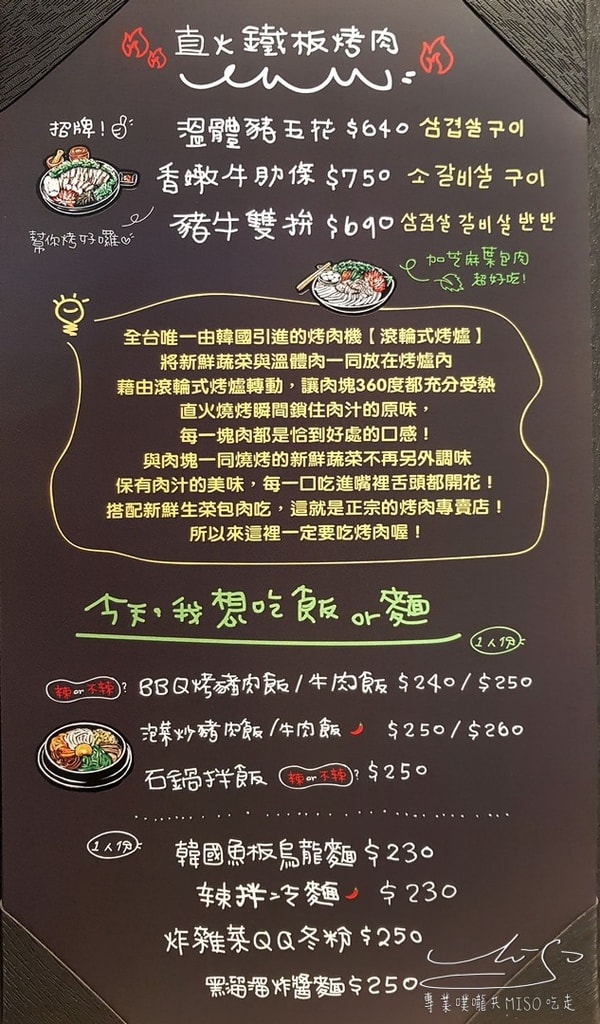 直火鐵板烤肉
招牌!
溫體豬五花 $640 삼겹살구이
香嫩牛肋條 $750 소갈비살 구이
豬牛雙拚 $690 삼겹살 갈비살 반반
幫你烤好囉
加芝麻葉包肉
超好吃!
全台唯一由韓國引進的烤肉機【滾輪式烤爐】
將新鮮蔬菜與溫體肉一同放在烤爐內
藉由滾輪式烤爐轉動,讓肉塊360度都充分受熱
直火燒烤瞬間鎖住肉汁的原味,
每一塊肉都是恰到好處的口感!
與肉塊一同燒烤的新鮮蔬菜不再另外調味
保有肉汁的美味,每一口吃進嘴裡舌頭都開花!
搭配新鮮生菜包肉吃,這就是正宗的烤肉專賣店!
所以來這裡一定要吃烤肉喔!
今天,我想吃飯 or 麵
1人份
辣or不辣? BBQ烤豬肉飯/牛肉飯 $240/$250
泡菜炒豬肉飯/牛肉飯 $250/$260
石鍋拌飯 辣or不辣? $250
1人份
韓國魚板烏龍麵 $230
辣拌冷麵 $230
炸雜菜QQ冬粉 $250
黑溜溜炸醬麵 $250
miso
專業噗嚨共MISO吃走